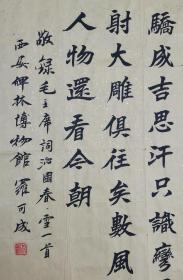 驕成吉思汗只識彎
射大雕俱往矣數風
人物還看今朝
敬錄毛主席詞沁園春雪一首
西安碑林博物館羅可成